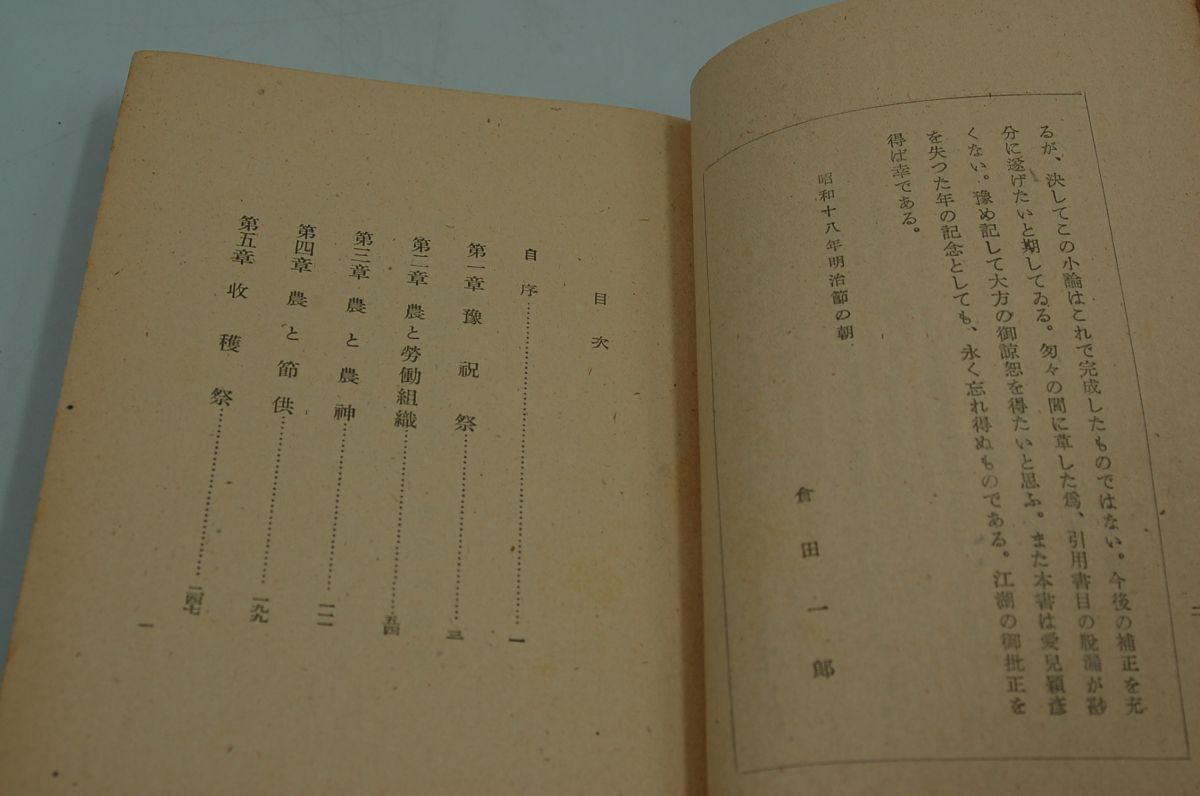 るが、決してこの小論はこれで完成したものではない。今後の補正を充
分に遂げたいと期してゐる。匆々の間に草した爲、引用書目の脱漏が尠
くない。豫め記して大方の御諒恕を得たいと思ふ。また本書は愛兒穎彦
を失つた年の記念としても、永く忘れ得ぬものである。江湖の御批正を
得ば幸である。
昭和十八年明治節の朝
倉田一郎
二
目次
自序……一
第一章 豫祝祭……三
第二章 農と勞働組織……五四
第三章 農と農神……一一一
第四章 農と節供……一九九
第五章 收穫祭……二四七
一